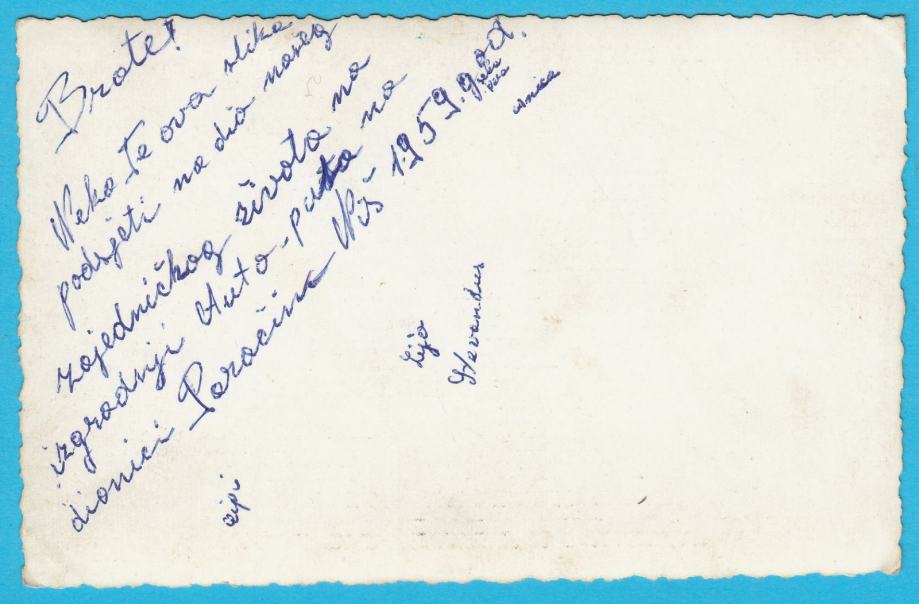 Brate!
Neka Te ova slika
podsjeti na dio našeg
zajedničkog života na
izgradnji Auto-puta na
dionici Paraćin Niš 1959. god.
Anica
Lijo
Stevandus
cipi